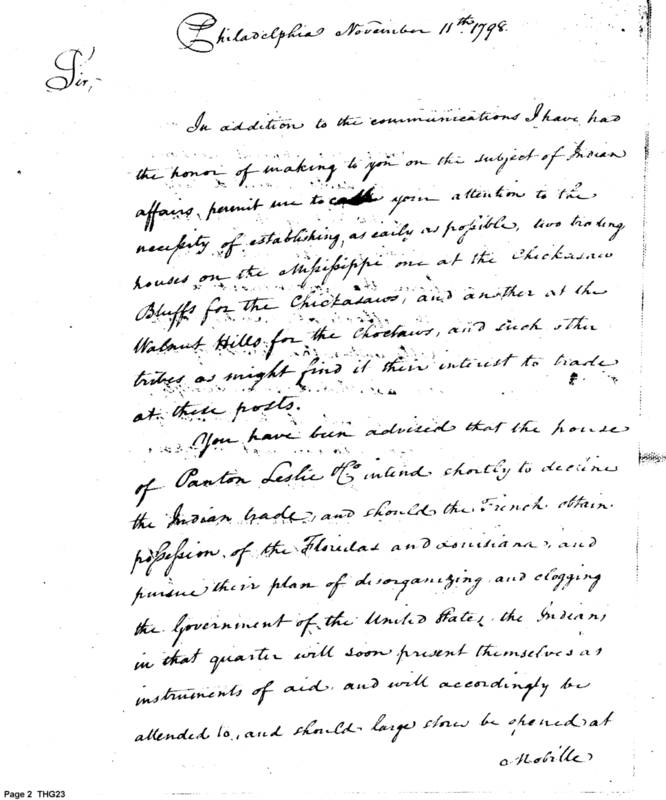 Philadelphia November 11th. 1798.
Sir,
In addition to the communications I have had
the honor of making to you on the subject of Indian
affairs, permit me to call your attention to the
necessity of establishing, as early as possible, two trading
houses on the Mississippi one at the Chickasaw
Bluffs for the Chickasaws, and another at the
Walnut Hills for the Choctaws, and such other
tribes as might find it their interest to trade
at these posts.
You have been advised that the house
of Panton Leslie & Co intend shortly to decline
the Indian trade, and should the French obtain
possession of the Floridas and Louisiana, and
pursue their plan of disorganizing and clogging
the Government of the United States, the Indians
in that quarter will soon present themselves as
instruments of aid, and will accordingly be
attended to, and should large stores be opened at
Mobille
Page 2 THG23